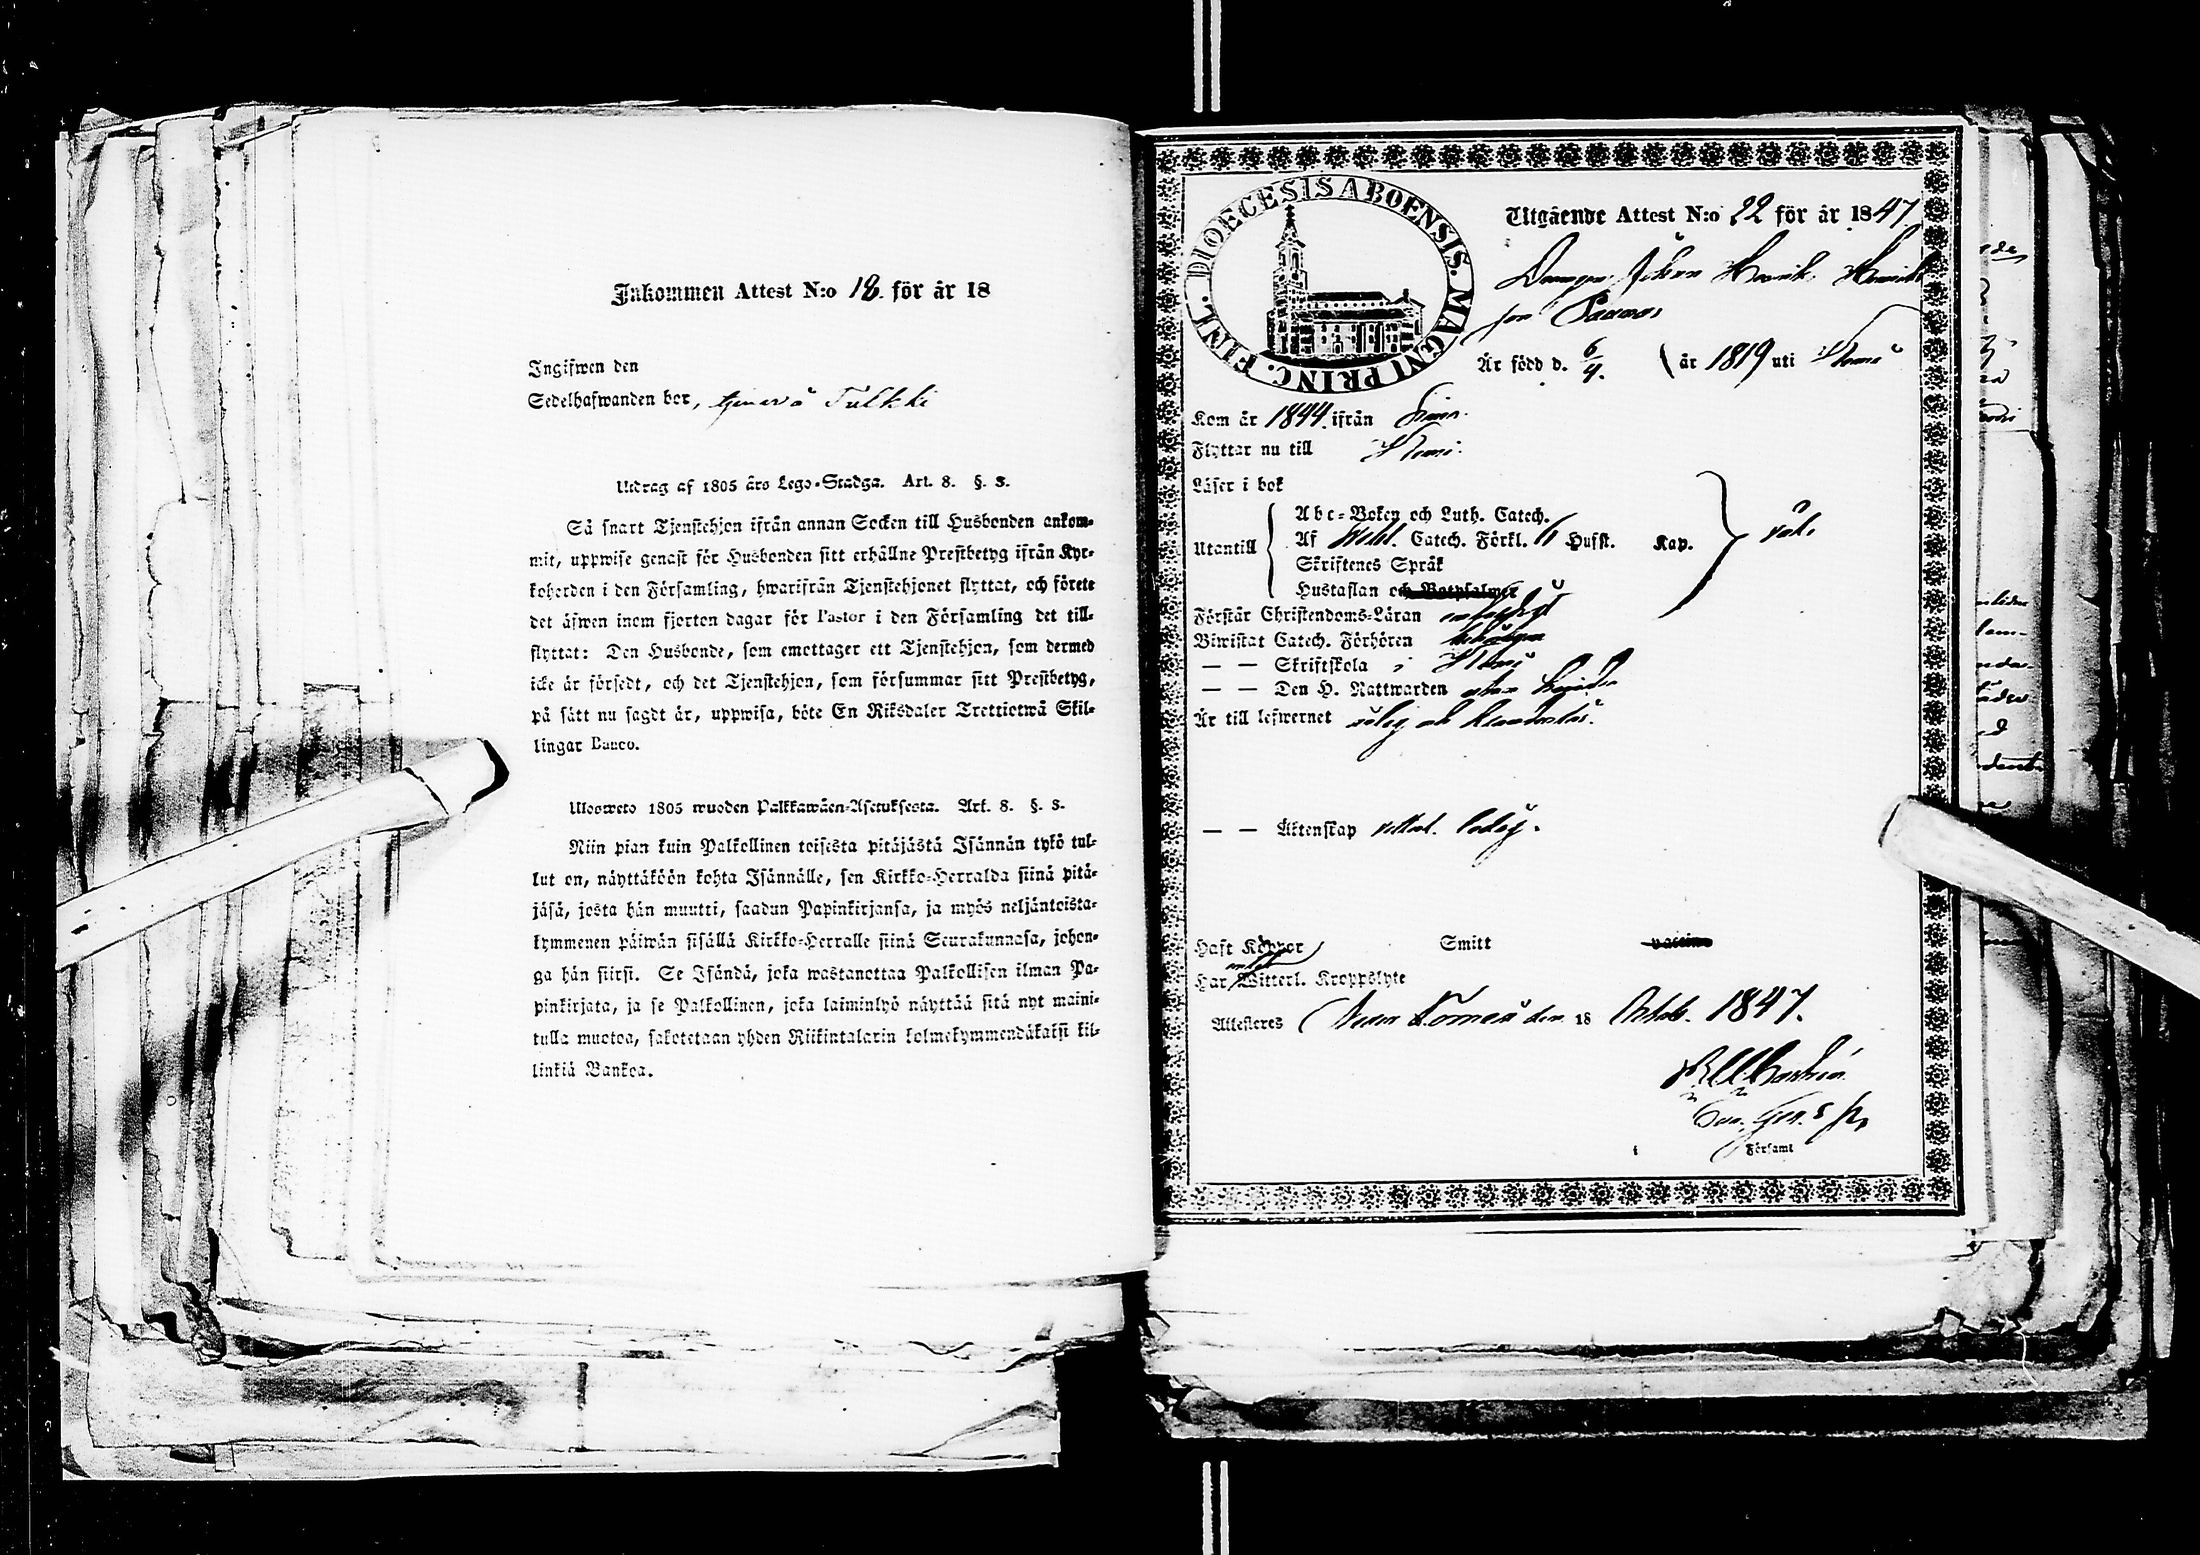 Inkommen Attest N:o 18. för år 18
Ingifwen den
Sedelhafwanden bor, Tulkki
Utdrag af 1805 års Lego-Stadga. Art. 8. §. 3.
Så snart Tjenstehjon ifrån annan Socken till Husbonden ankom-
mit, uppwise genast för Husbonden sitt erhållne Prestbetyg ifrån Kyr-
koherden i den Församling, hwarifrån Tjenstehjonet flyttat, och förete
det äfwen inom fjorton dagar för Pastor i den Församling det till-
flyttat: Den Husbonde, som emottager ett Tjenstehjon, som dermed
icke är försedt, och det Tjenstehjon, som försummar sitt Prestbetyg,
på sätt nu sagdt är, uppwisa, böte En Riksdaler Trettiotwå Skil-
lingar Banco.
Ulosweto 1805 wuoden Palkkawäen-Asetuksesta. Art. 8. §. 3.
Niin pian kuin Palkollinen toisesta pitäjästä Isännän tykö tul-
lut on, näyttäköön kohta Isännälle, sen Kirkko-Herralda siinä pitä-
jäsä, josta hän muutti, saadun Papinkirjansa, ja myös neljäntoista-
kymmenen päiwän sisällä Kirkko-Herralle siinä Seurakunnasa, johon-
ga hän siirsi. Se Isändä, joka wastanottaa Palkollisen ilman Pa-
pinkirjata, ja se Palkollinen, joka laiminlyö näyttää sitä nyt maini-
tulla muotoa, sakotetaan yhden Riikintalarin kolmekymmendäkaksi kil-
linkiä Bankoa.
DIOECESIS ABOENSIS. MAGNI PRINC. FINL.
Utgående Attest N:o 22 för år 1847
Drängen Johan Henrik Henriks
son Paawos
Är född d. 6/4. år 1819 uti Kemi
Kom år 1844. ifrån Simo.
Flyttar nu till Kemi.
Läser i bok
Utantill
Abc-Boken och Luth. Catech.
Af Catech. Förkl. Husst. Kap.
Skriftenes Språk
Hustaflan och Botpsalmer
Förstår Christendoms-Läran
Biwistat Catech. Förhören
— — Skriftskola i Kemi
— — Den H. Nattwarden
Är till lefwernet och
— — Äktenskap ledig.
Haft Koppor Smitt vaccine
Har Witterl. Kroppslyte
Attesteres Neder Torneå den 18 Octob. 1847.
i Församl